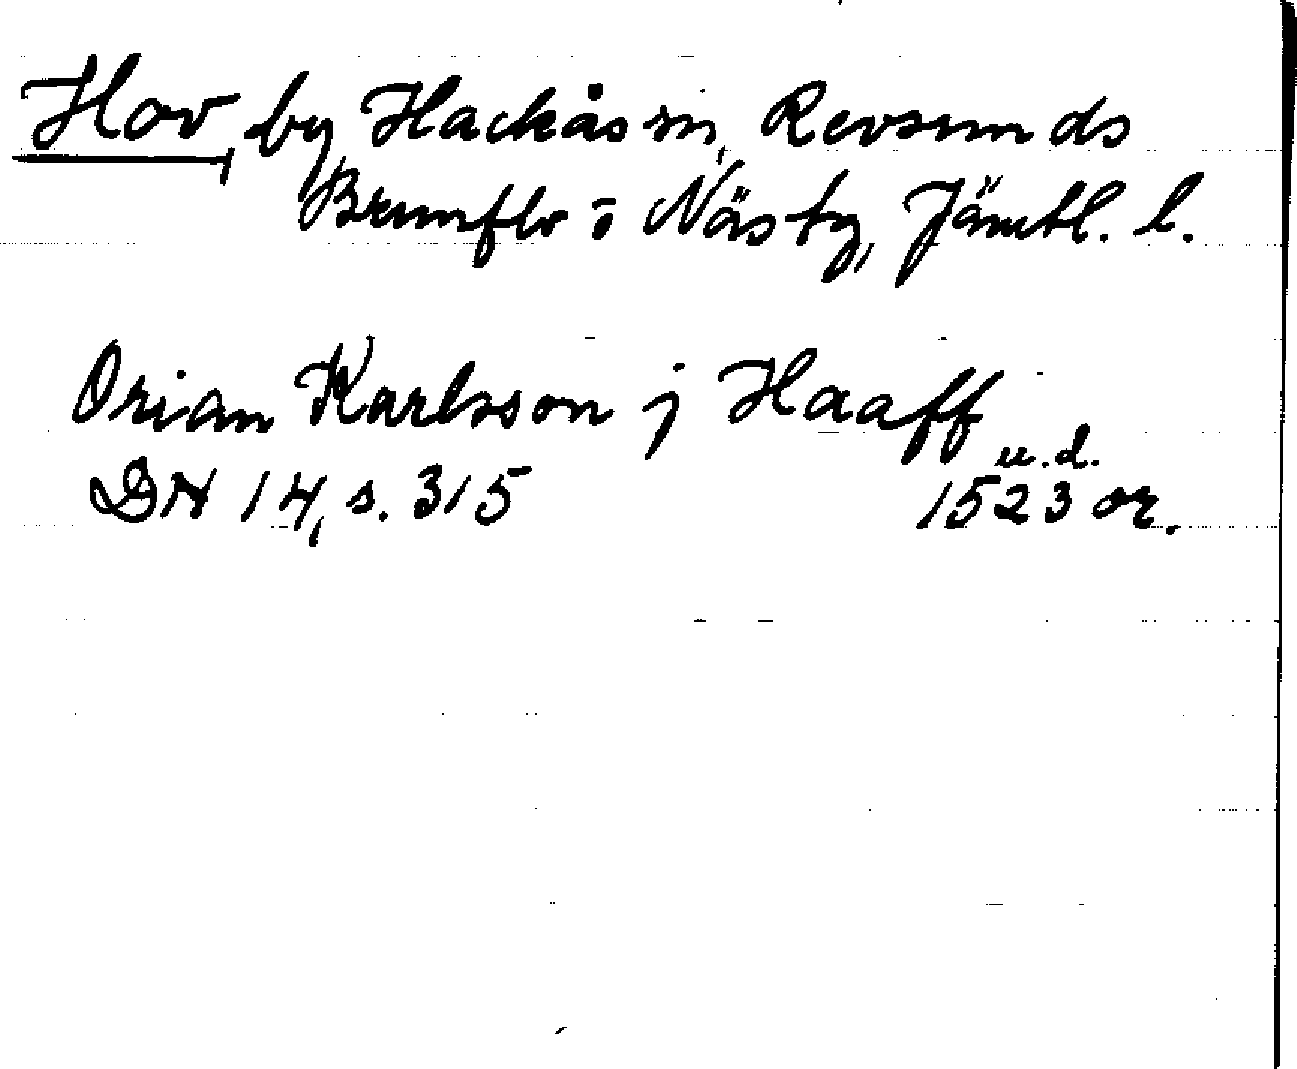 Hov, by, Hackås sn, Revsunds
Brunflo o Näs tg, Jämtl. l.
Orian Karlsson j Haaff
u.d.
DN 14, s. 315 1523 or.